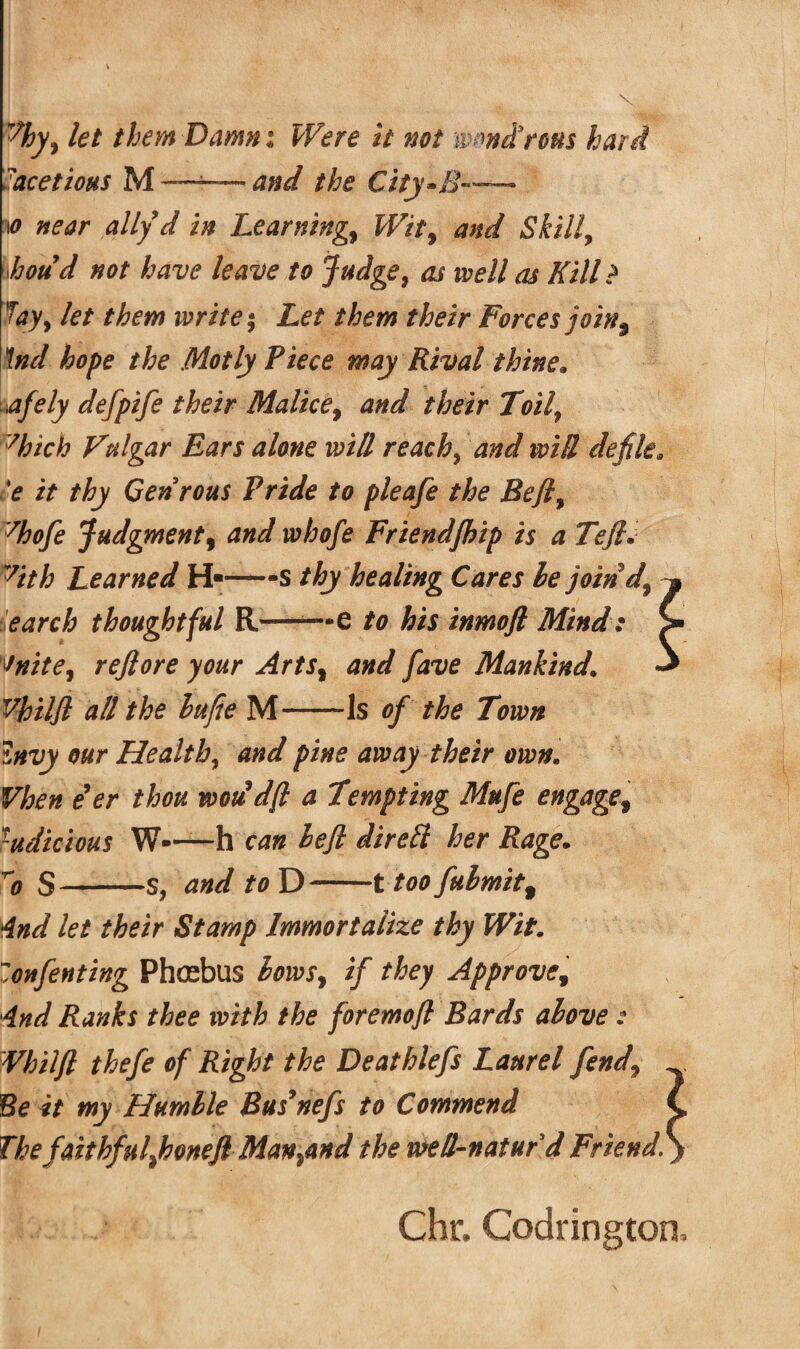 hy, let them Damn: Were it not wond'rous hard
acetious M—— and the City-B——
o near ally'd in Learning, Wit, and Skill,
hou'd not have leave to Judge, as well as Kill?
ay, let them write; Let them their Forces join,
nd hope the Motly Piece may Rival thine.
afely deſpiſe their Malice, and their Toil,
hich Vulgar Ears alone will reach, and will defile.
e it thy Gen'rous Pride to pleaſe the Beſt,
hoſe Judgment, and whoſe Friendſhip is a Teſt.
ith Learned H——s thy healing Cares be join'd,
earch thoughtful R——e to his inmoſt Mind:
nite, reſtore your Arts, and ſave Mankind.
Whilſt all the buſie M——ls of the Town
Envy our Health, and pine away their own.
When e'er thou wou'dſt a Tempting Muſe engage,
udicious W——h can beſt direct her Rage.
o S——s, and to D——t too ſubmit,
And let their Stamp Immortalize thy Wit.
Conſenting Phœbus bows, if they Approve,
And Ranks thee with the foremoſt Bards above:
Whilſt theſe of Right the Deathleſs Laurel ſend,
Be it my Humble Bus'neſs to Commend
The faithful, honeſt Man, and the well-natur'd Friend.
Chr. Codrington.